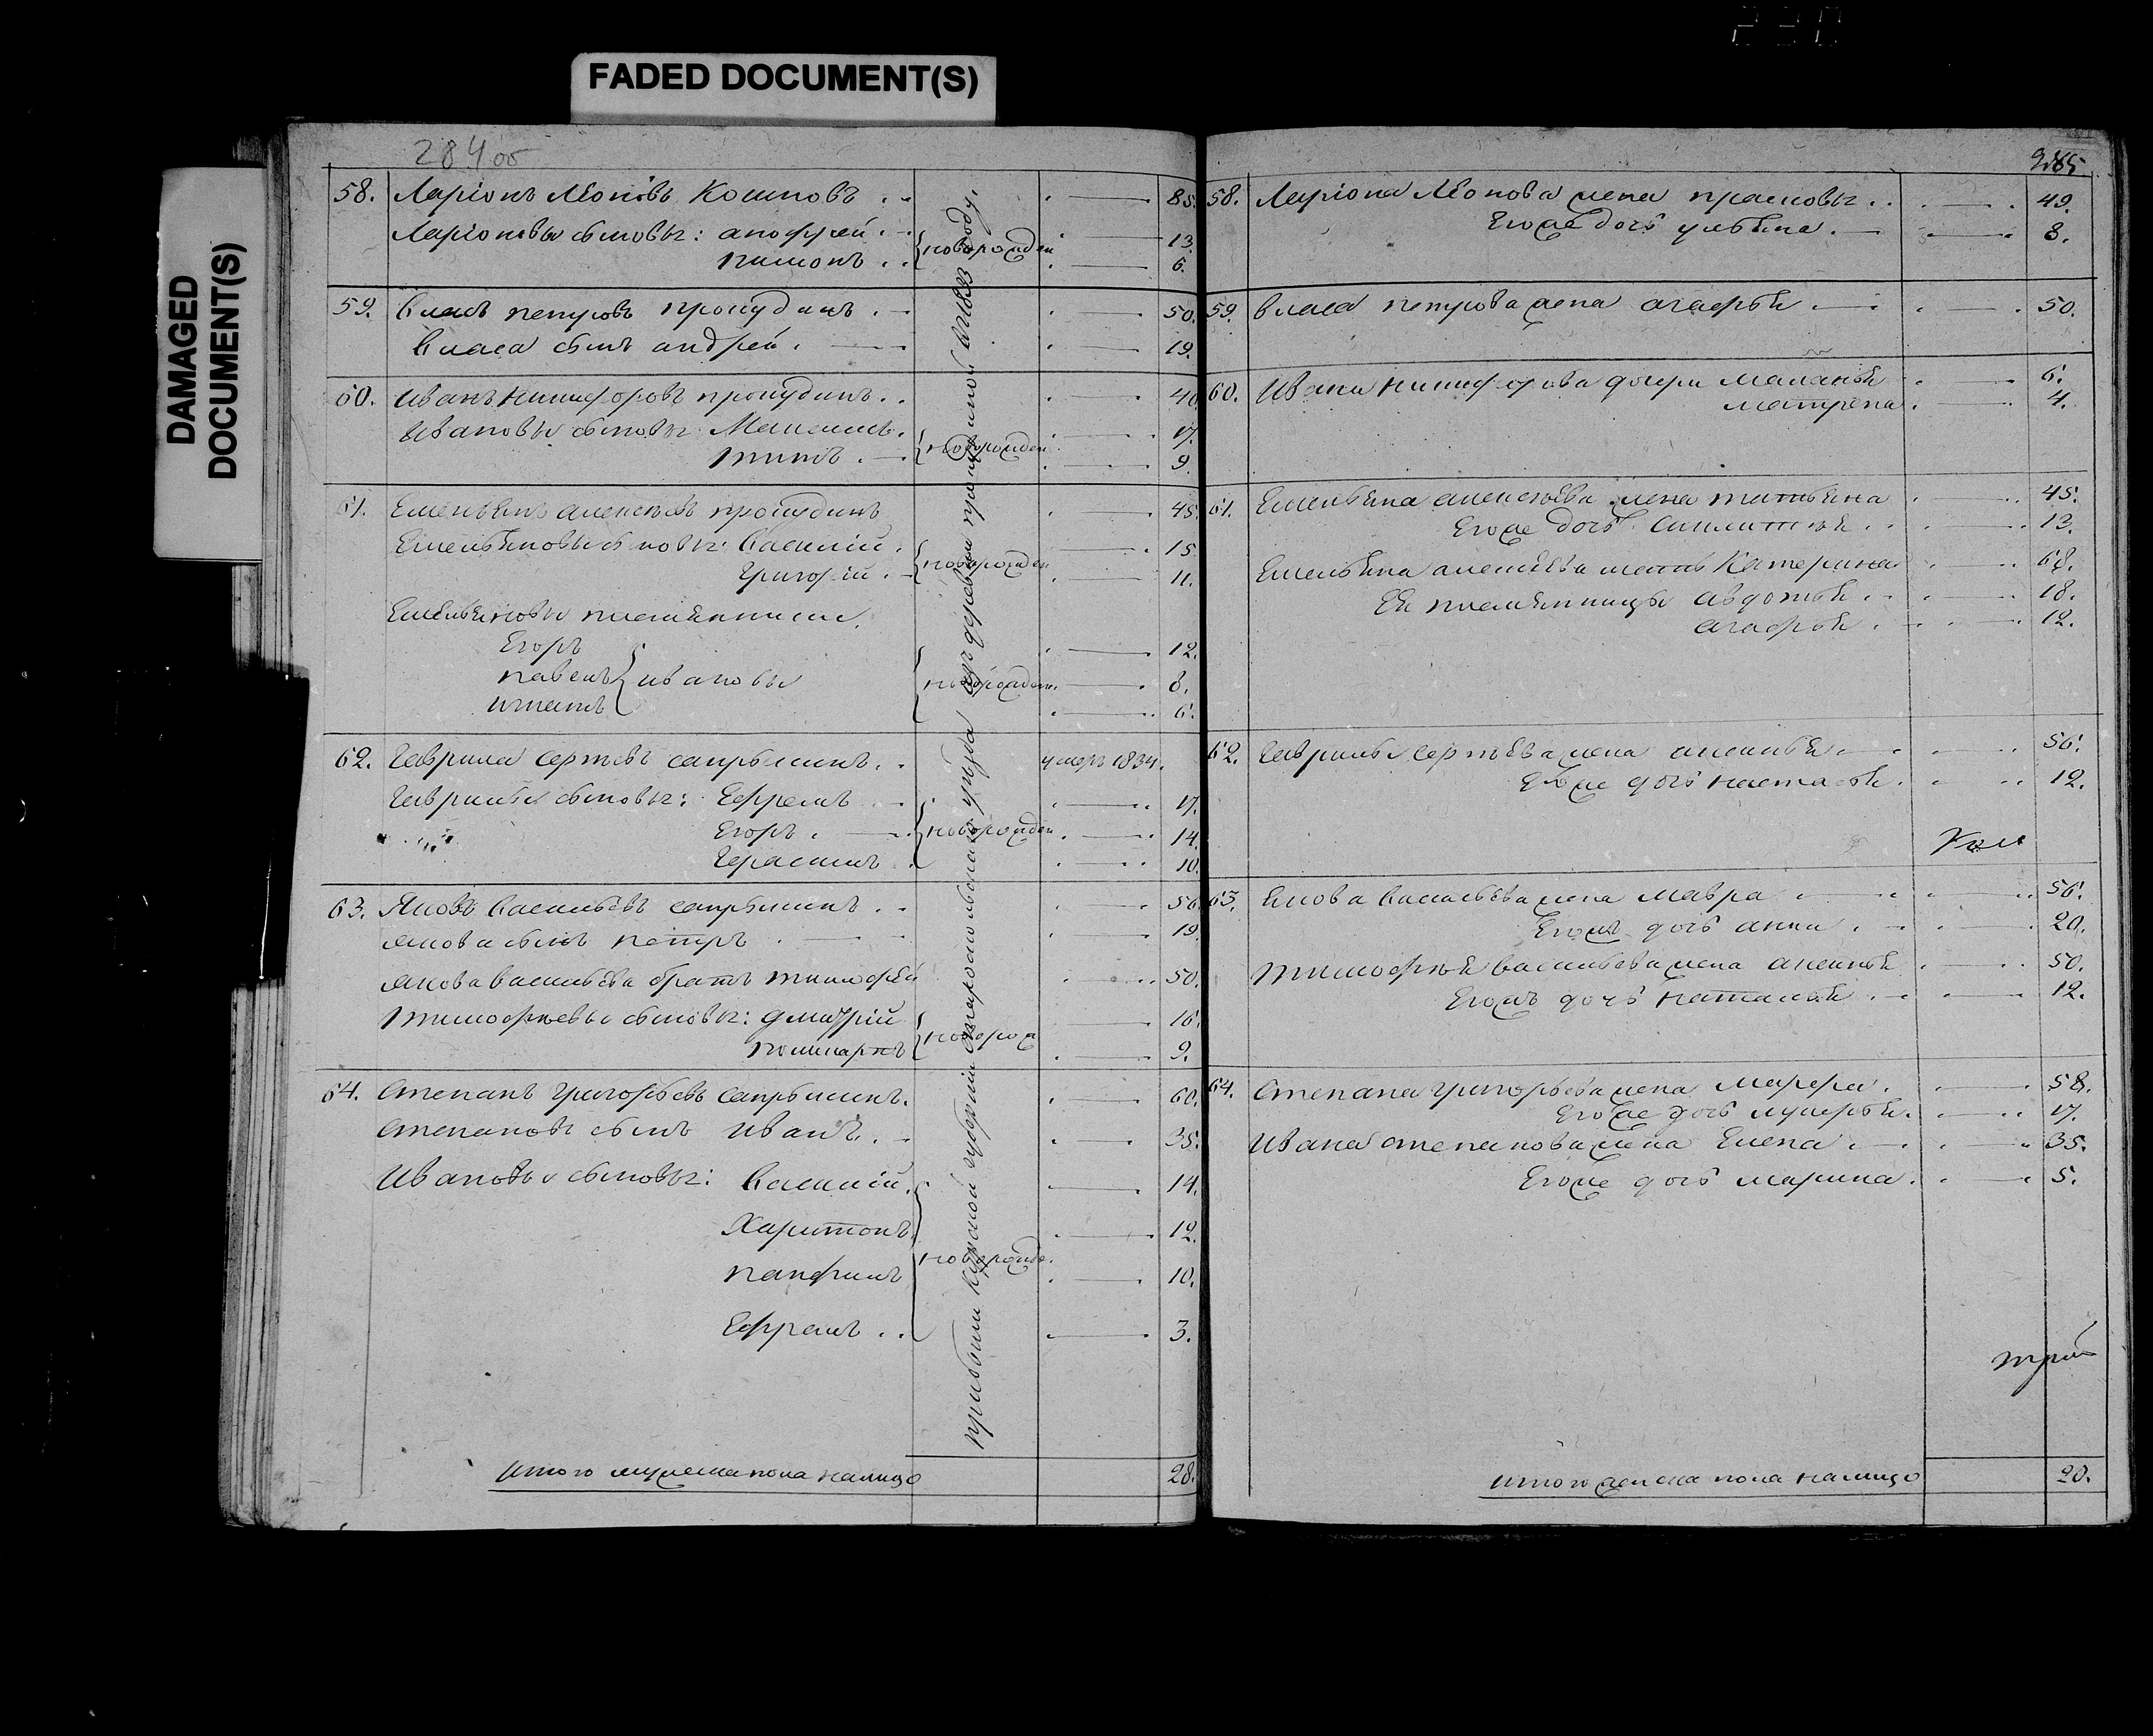 FADED DOCUMENT(S)
DAMAGED
DOCUMENT(S)
284 об
58. Ларіонъ Леоновъ Кошповъ 85.
Ларіоновы сыновья: анофрей новорожден 13
пимонъ 6.
59. власъ петровъ прокудинъ 50.
власа сынъ андрей 19.
60. иванъ никифоровъ прокудинъ 40
ивановы сыновья Максимъ новорожден 17.
титъ 9.
61. Емельянъ алексѣевъ прокудинъ 45.
Емельяновы сыновья: василій новорожден 15
григорій 11.
Емельяновы племянники
Егоръ 12.
павелъ ивановы новорожден. 8.
игнатъ 6.
62. гаврила сергѣевъ сапрыкинъ умеръ 1834.
гаврилы сыновья: Ефремъ 17.
Егоръ новорожден 14.
герасимъ 10.
63. Яковъ васильевъ сапрыкинъ 56
якова сынъ петръ 19.
якова васильева братъ тимофей 50.
тимофеевы сыновья: дмитрій 16.
поликарпъ новорож 9.
64. степанъ григорьевъ сапрыкинъ. 60.
степановъ сынъ иванъ 35.
ивановы сыновья: василій 14.
Харитонъ 12.
панфилъ новорожде. 10.
Ефремъ 3.
прибыли Курской губерніи старооскольскаго уѣзда изъ деревни прокудиной въ 1833 году.
итого мужеска пола налицо 28.
285
58. Ларіона Леонова жена прасковья 49.
Егоже дочь ульяна 8.
59. власа петрова жена агафья 50.
60. ивана никифорова дочери маланья 6.
матрена 4.
61. Емельяна алексѣева жена татьяна 45.
Егоже дочь 13.
Емельяна алексѣева мать Катерина 68.
Ея племянницы авдотья 18.
агафья 12.
62. гаврилы сергѣева жена аксинья 56.
Егоже дочь настасья 12.
63. якова васильева жена мавра 56.
Егожъ дочь анна 20.
тимофея васильева жена аксинья 50.
Егожъ дочь наталья 12.
64. степана григорьева жена марфа 58.
Егоже дочь лукерья 17.
ивана степанова жена Елена 35.
Егоже дочь марина 5.
итого женска пола налицо 20.